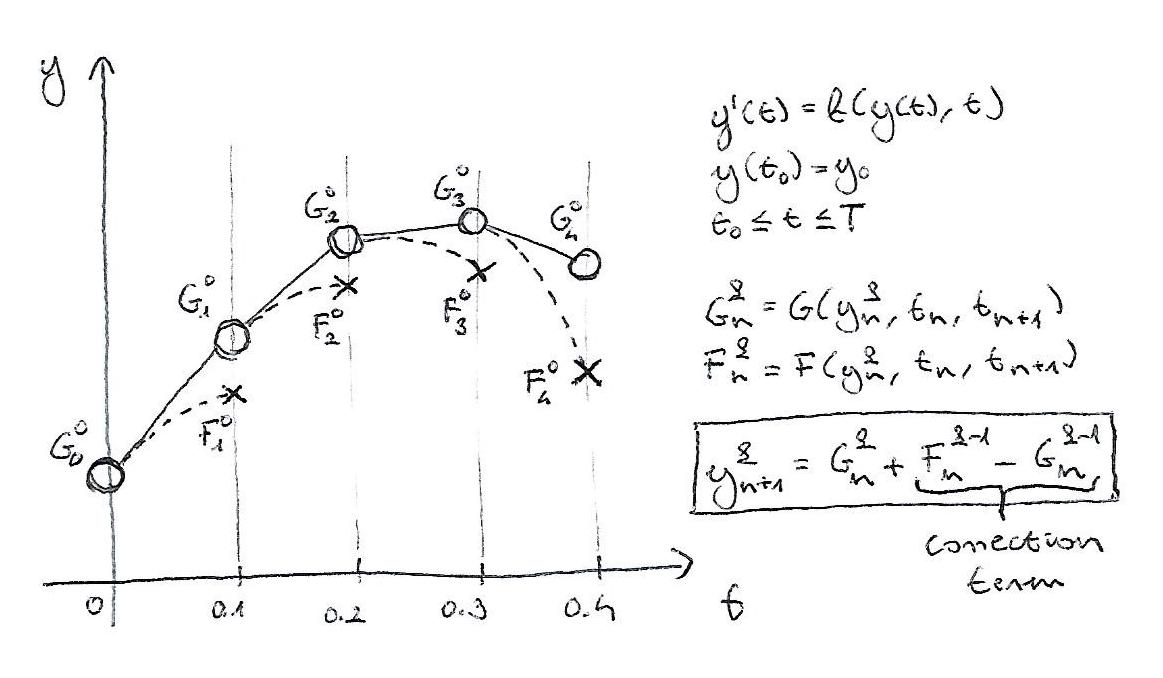 y
G₀⁰
G₁⁰
G₂⁰
G₃⁰
G₄⁰
F₁⁰
F₂⁰
F₃⁰
F₄⁰
0 0.1 0.2 0.3 0.4 t
y'(t) = f(y(t), t)
y(t₀) = y₀
t₀ ≤ t ≤ T
Gₙᵏ = G(yₙᵏ, tₙ, tₙ₊₁)
Fₙᵏ = F(yₙᵏ, tₙ, tₙ₊₁)
yₙ₊₁ᵏ = Gₙᵏ + Fₙᵏ⁻¹ - Gₙᵏ⁻¹
correction
term